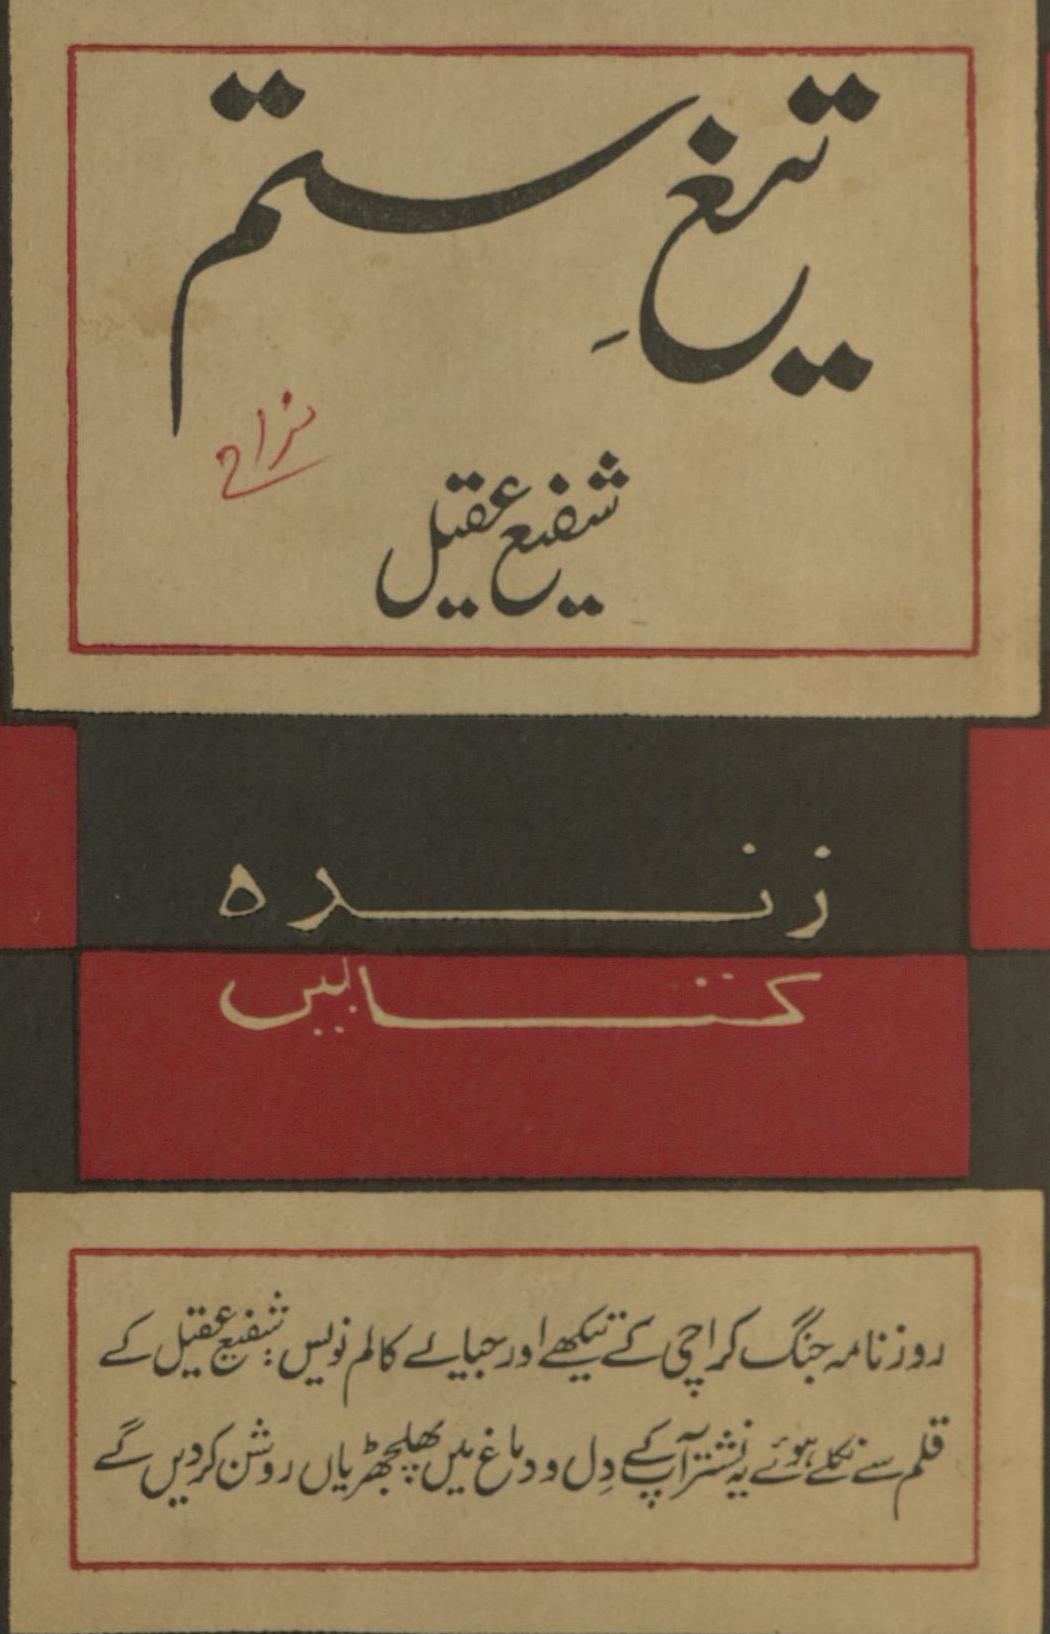 تیغِ ستم
شفیع عقیل
زندہ
کتابیں
روزنامہ جنگ کراچی کے تیکھے اور جیالے کالم نویس؛ شفیع عقیل کے
قلم سے نکلے ہوئے یہ نشتر آپ کے دِل و دماغ میں پھلجھڑیاں روشن کر دیں گے